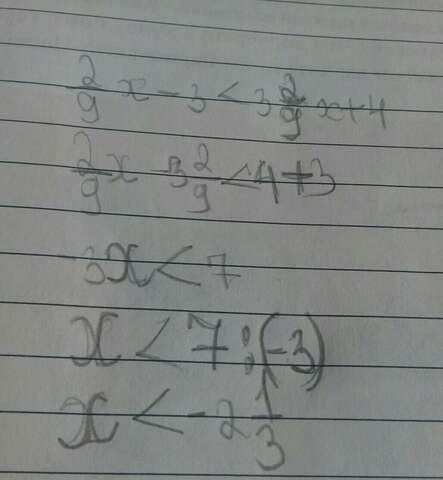 2/9 x - 3 < 3 2/9 x + 4
2/9 x - 3 2/9 < 4 + 3
-3x < 7
x < 7 : (-3)
x < -2 1/3